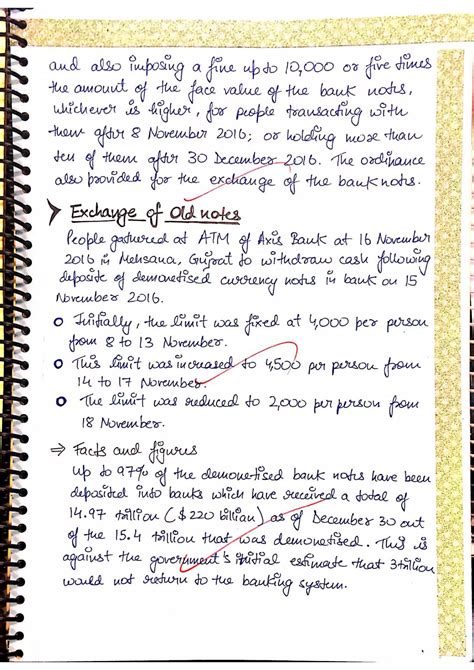 and also imposing a fine up to 10,000 or five times
the amount of the face value of the bank notes,
whichever is higher, for people transacting with
them after 8 November 2016; or holding more than
ten of them after 30 December 2016. The ordinance
also provided for the exchange of the bank notes.
➤ Exchange of Old notes
People gathered at ATM of Axis Bank at 16 November
2016 in Mehsana, Gujrat to withdraw cash following
deposite of demonetised currency notes in bank on 15
November 2016.
o Initially, the limit was fixed at 4,000 per person
from 8 to 13 November.
o This limit was increased to 4,500 per person from
14 to 17 November.
o The limit was reduced to 2,000 per person from
18 November.
⇒ Facts and figures
Up to 97% of the demonetised bank notes have been
deposited into banks which have received a total of
14.97 trillion ($220 billian) as of December 30 out
of the 15.4 trillion that was demonetised. This is
against the government's initial estimate that 3 trillion
would not return to the banking system.